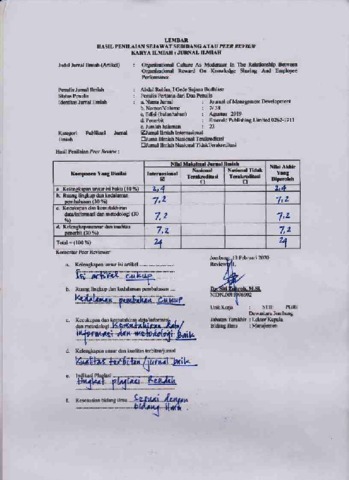 LEMBAR
HASIL PENILAIAN SEJAWAT SEBIDANG ATAU PEER REVIEW
KARYA ILMIAH : JURNAL ILMIAH
Judul Jurnal Ilmiah (Artikel) : Organizational Culture As Moderator In The Relationship Between
Organizational Reward On Knowledge Sharing And Employee
Performance
Penulis Jurnal Ilmiah :
Status Penulis : Penulis Pertama dari Dua Penulis
Identitas Jurnal Ilmiah : a. Nama Jurnal : Journal of Management Development
b. Nomor/Volume :
c. Edisi (bulan/tahun) : Agustus 2019
d. Penerbit : Emerald Publishing Limited 0262-1711
e. Jumlah halaman : 22
Kategori Publikasi Jurnal Ilmiah :
Jurnal Ilmiah Internasional
Jurnal Ilmiah Nasional Terakreditasi
Jurnal Ilmiah Nasional Tidak Terakreditasi
Hasil Penilaian Peer Review :
Komponen Yang Dinilai
Nilai Maksimal Jurnal Ilmiah
Internasional
Nasional Terakreditasi
Nasional Tidak Terakreditasi
Nilai Akhir Yang Diperoleh
a. Kelengkapan unsur isi buku (10 %) 2,4 2,4
b. Ruang lingkup dan kedalaman pembahasan (30 %) 7,2 7,2
c. Kecukupan dan kemutakhiran data/informasi dan metodologi (30 %) 7,2 7,2
d. Kelengkapan unsur dan kualitas penerbit (30 %) 7,2 7,2
Total = (100 %) 24 24
Komentar Peer Reviewer
Jombang, Februari 2020
Reviewer
a. Kelengkapan unsur isi artikel
Isi artikel cukup
b. Ruang lingkup dan kedalaman pembahasan
Kedalaman pembahasan cukup
Unit Kerja : STIE PGRI
Dewantara Jombang
Jabatan Terakhir : Lektor Kepala
Bidang Ilmu : Manajemen
c. Kecukupan dan kemutakhiran data/informasi
dan metodologi Kemutakhiran data/
informasi dan metodologi baik
d. Kelengkapan unsur dan kualitas
Kualitas terbitan/jurnal baik
e. Indikasi Plagiasi
tingkat plagiasi Rendah
f. Kesesuaian bidang ilmu Sesuai dengan
bidang ilmu